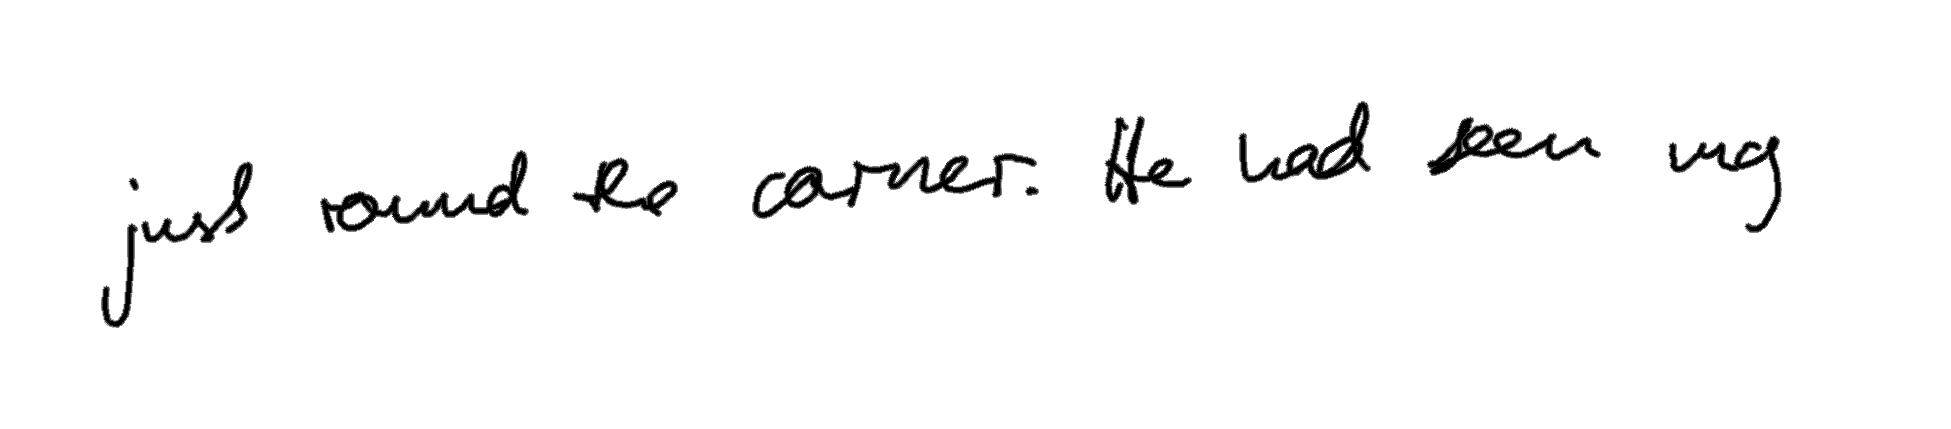 just round the corner. He had seen my